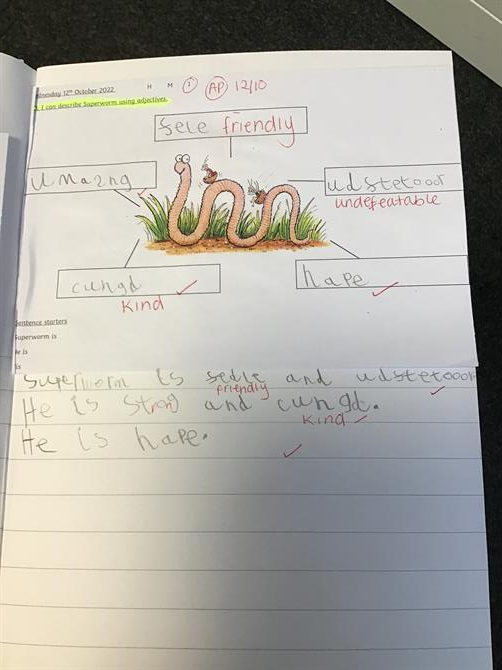 dnesday 12th October 2022. H M I AP 12/10
I can describe Superworm using adjectives.
fele friendly
umazng
udstetooor
undefeatable
cungd
kind
hape
Sentence starters
Superworm is
He is
is
Superworm is fedle and udstetooor
friendly
He is strong and cungd.
kind
He is hape.